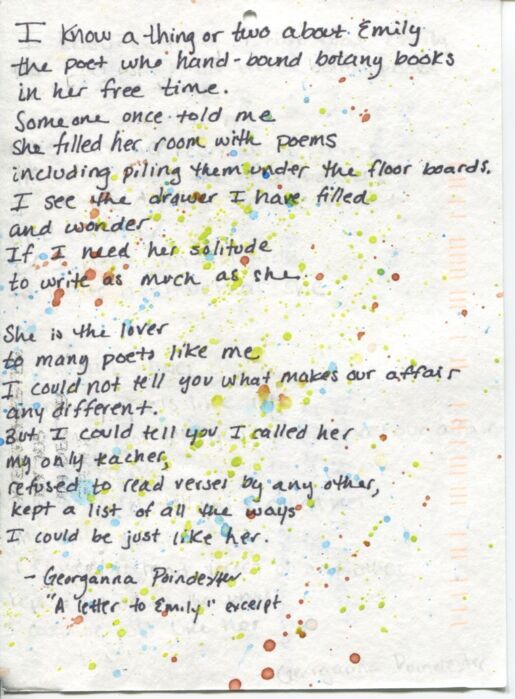 I know a thing or two about Emily
the poet who hand-bound botany books
in her free time.
Someone once told me
She filled her room with poems
including piling them under the floor boards.
I see the drawer I have filled
and wonder
If I need her solitude
to write as much as she
She is the lover
to many poets like me
I could not tell you what makes our affair
any different.
But I could tell you I called her
my only teacher,
refused to read verses by any other,
kept a list of all the ways
I could be just like her.
- Georganna Poindexter
"A letter to Emily" excerpt
Georganna Poindexter